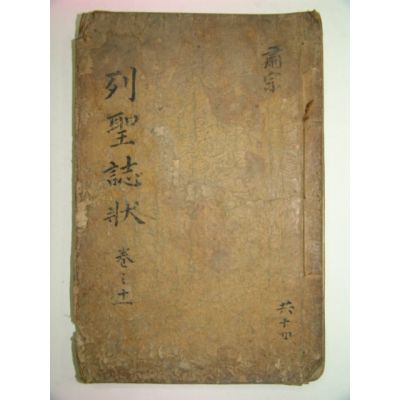 肅宗
共十四
列聖誌狀
卷之十一